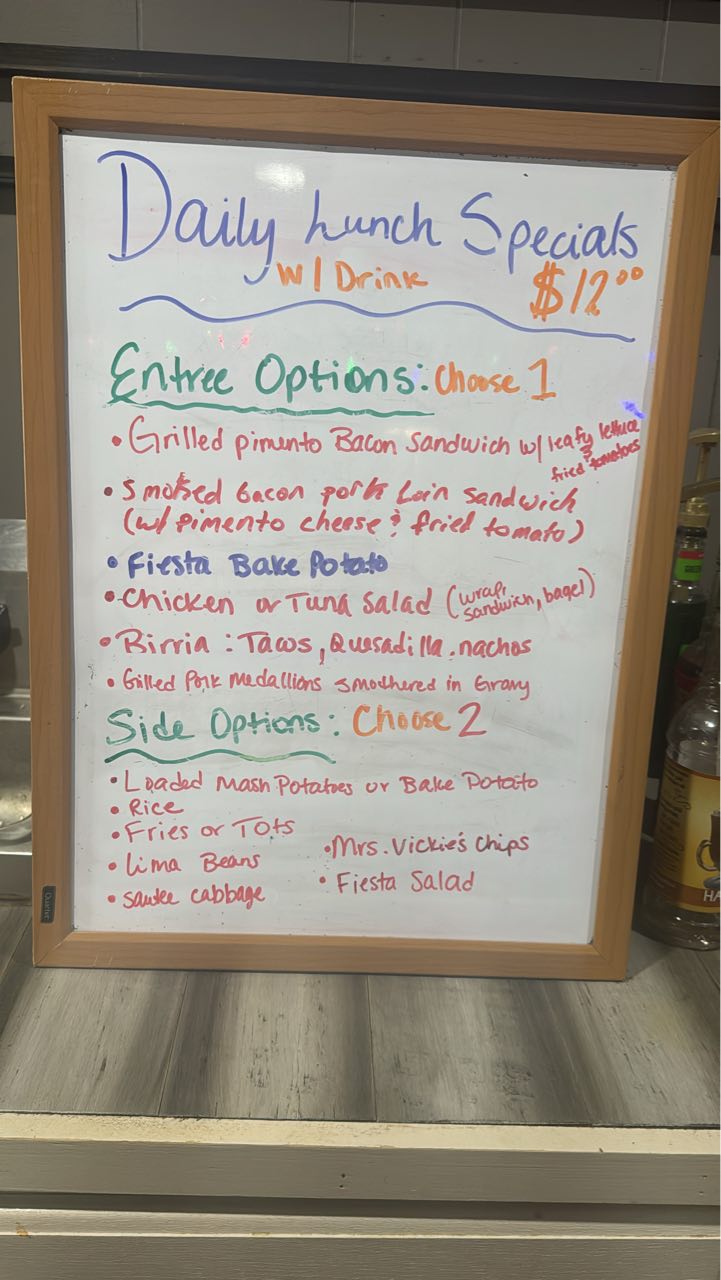 Daily Lunch Specials
W/Drink $12.00
Entree Options: Choose 1
• Grilled pimento Bacon Sandwich w/ leafy lettuce
& fried tomatoes
• Smoked bacon pork Loin sandwich
(w/ Pimento cheese & fried tomato)
• Fiesta Bake Potato
• Chicken or Tuna Salad (wrap,
sandwich, bagel)
• Birria: Tacos, Quesadilla, nachos
• Grilled Pork Medallions smothered in Gravy
Side Options: Choose 2
• Loaded Mash Potatoes or Bake Potato
• Rice
• Fries or Tots
• Lima Beans
• Sautee cabbage
• Mrs. Vickie's Chips
• Fiesta Salad
Quartet
HA